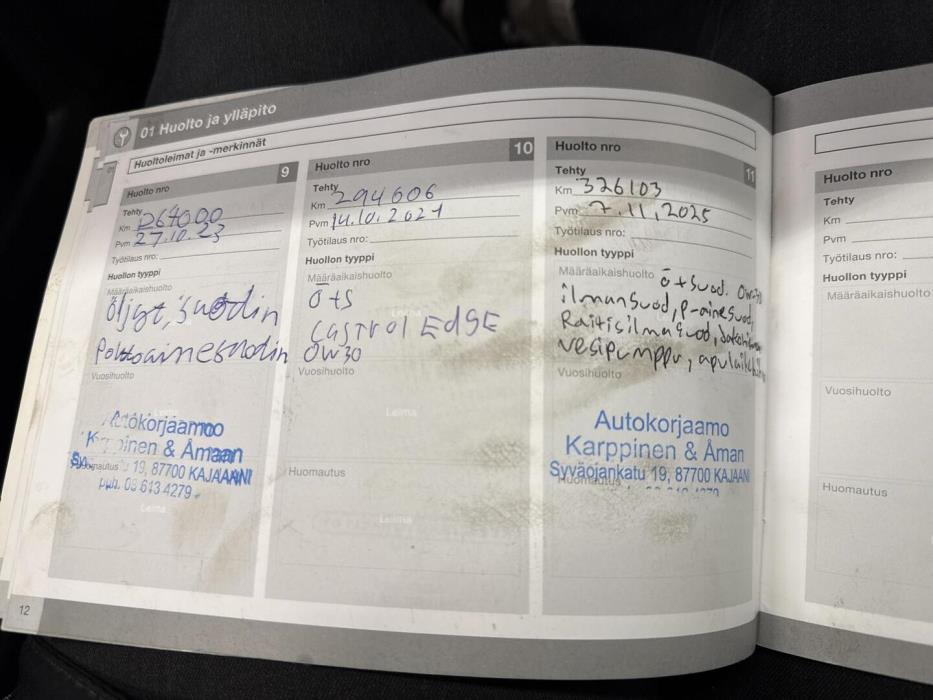 01 Huolto ja ylläpito
Huoltoleimat ja -merkinnät
Huolto nro 9
Tehty
Km 264000
Pvm 27.10.23
Työtilaus nro:
Huollon tyyppi
Määräaikaishuolto
Öljyt, suodin
Polttoainesuodin
Vuosihuolto
Leima
Autokorjaamo
Karppinen & Åman
19, 87700 KAJAANI
Huomautus
puh. 08 613 4279
Leima
Huolto nro 10
Tehty
Km 294606
Pvm 14.10.2024
Työtilaus nro:
Huollon tyyppi
Määräaikaishuolto
Ö+S
CASTROL EDGE
0W30
Vuosihuolto
Leima
Huomautus
Leima
Huolto nro 11
Tehty
Km 326103
Pvm 7.11.2025
Työtilaus nro:
Huollon tyyppi
Määräaikaishuolto
ö+suod. 0W-30
ilmansuod, p-ainesuod,
Raitisilmasuod,
vesipumppu,
Vuosihuolto
Autokorjaamo
Karppinen & Åman
Syväojankatu 19, 87700 KAJAANI
Huomautus
Huolto nro
Tehty
Km
Pvm
Työtilaus nro:
Huollon tyyppi
Määräaikaishuolto
Vuosihuolto
Huomautus
12